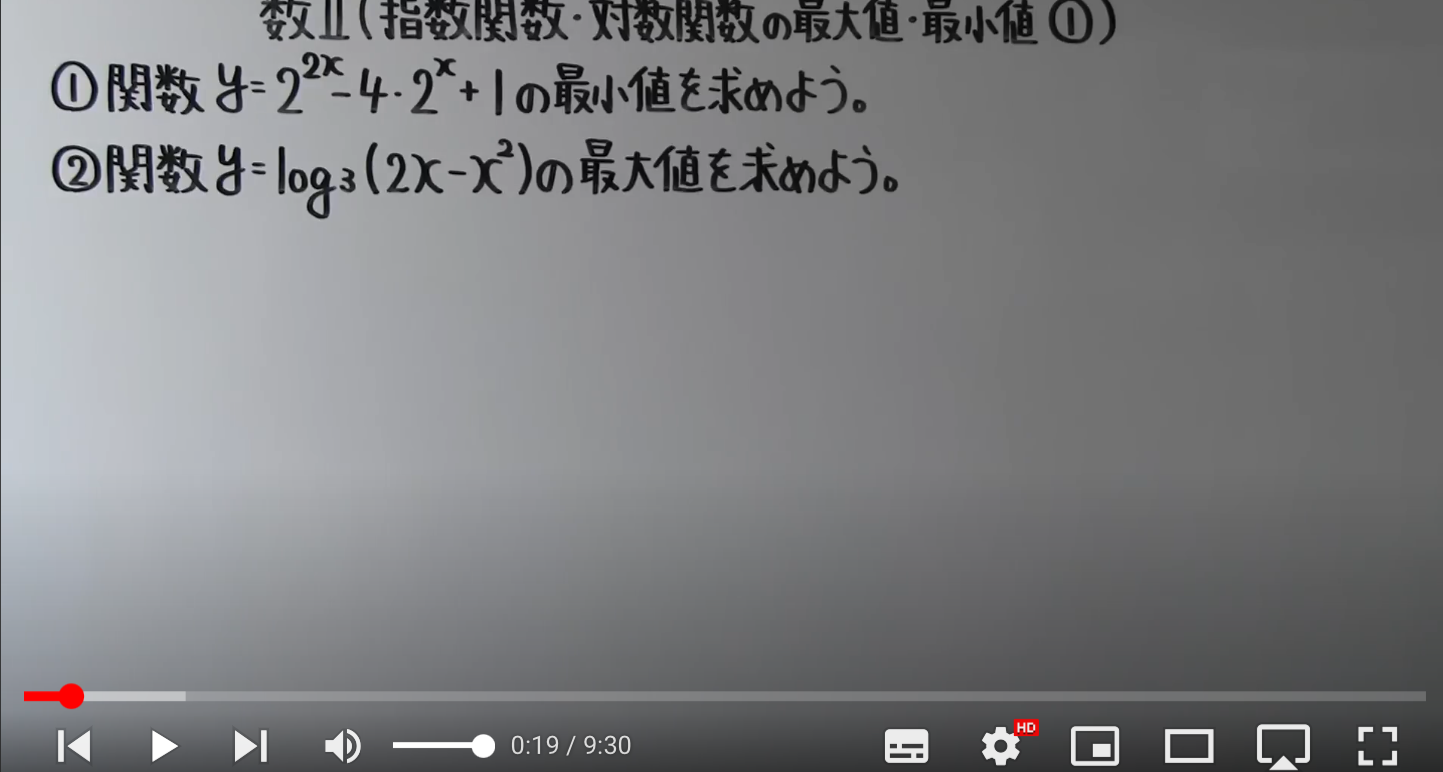 数Ⅱ(指数関数・対数関数の最大値・最小値①)
①関数 y=2^{2x}-4・2^x+1の最小値を求めよう。
②関数 y=log₃(2x-x²)の最大値を求めよう。
HD
0:19 / 9:30